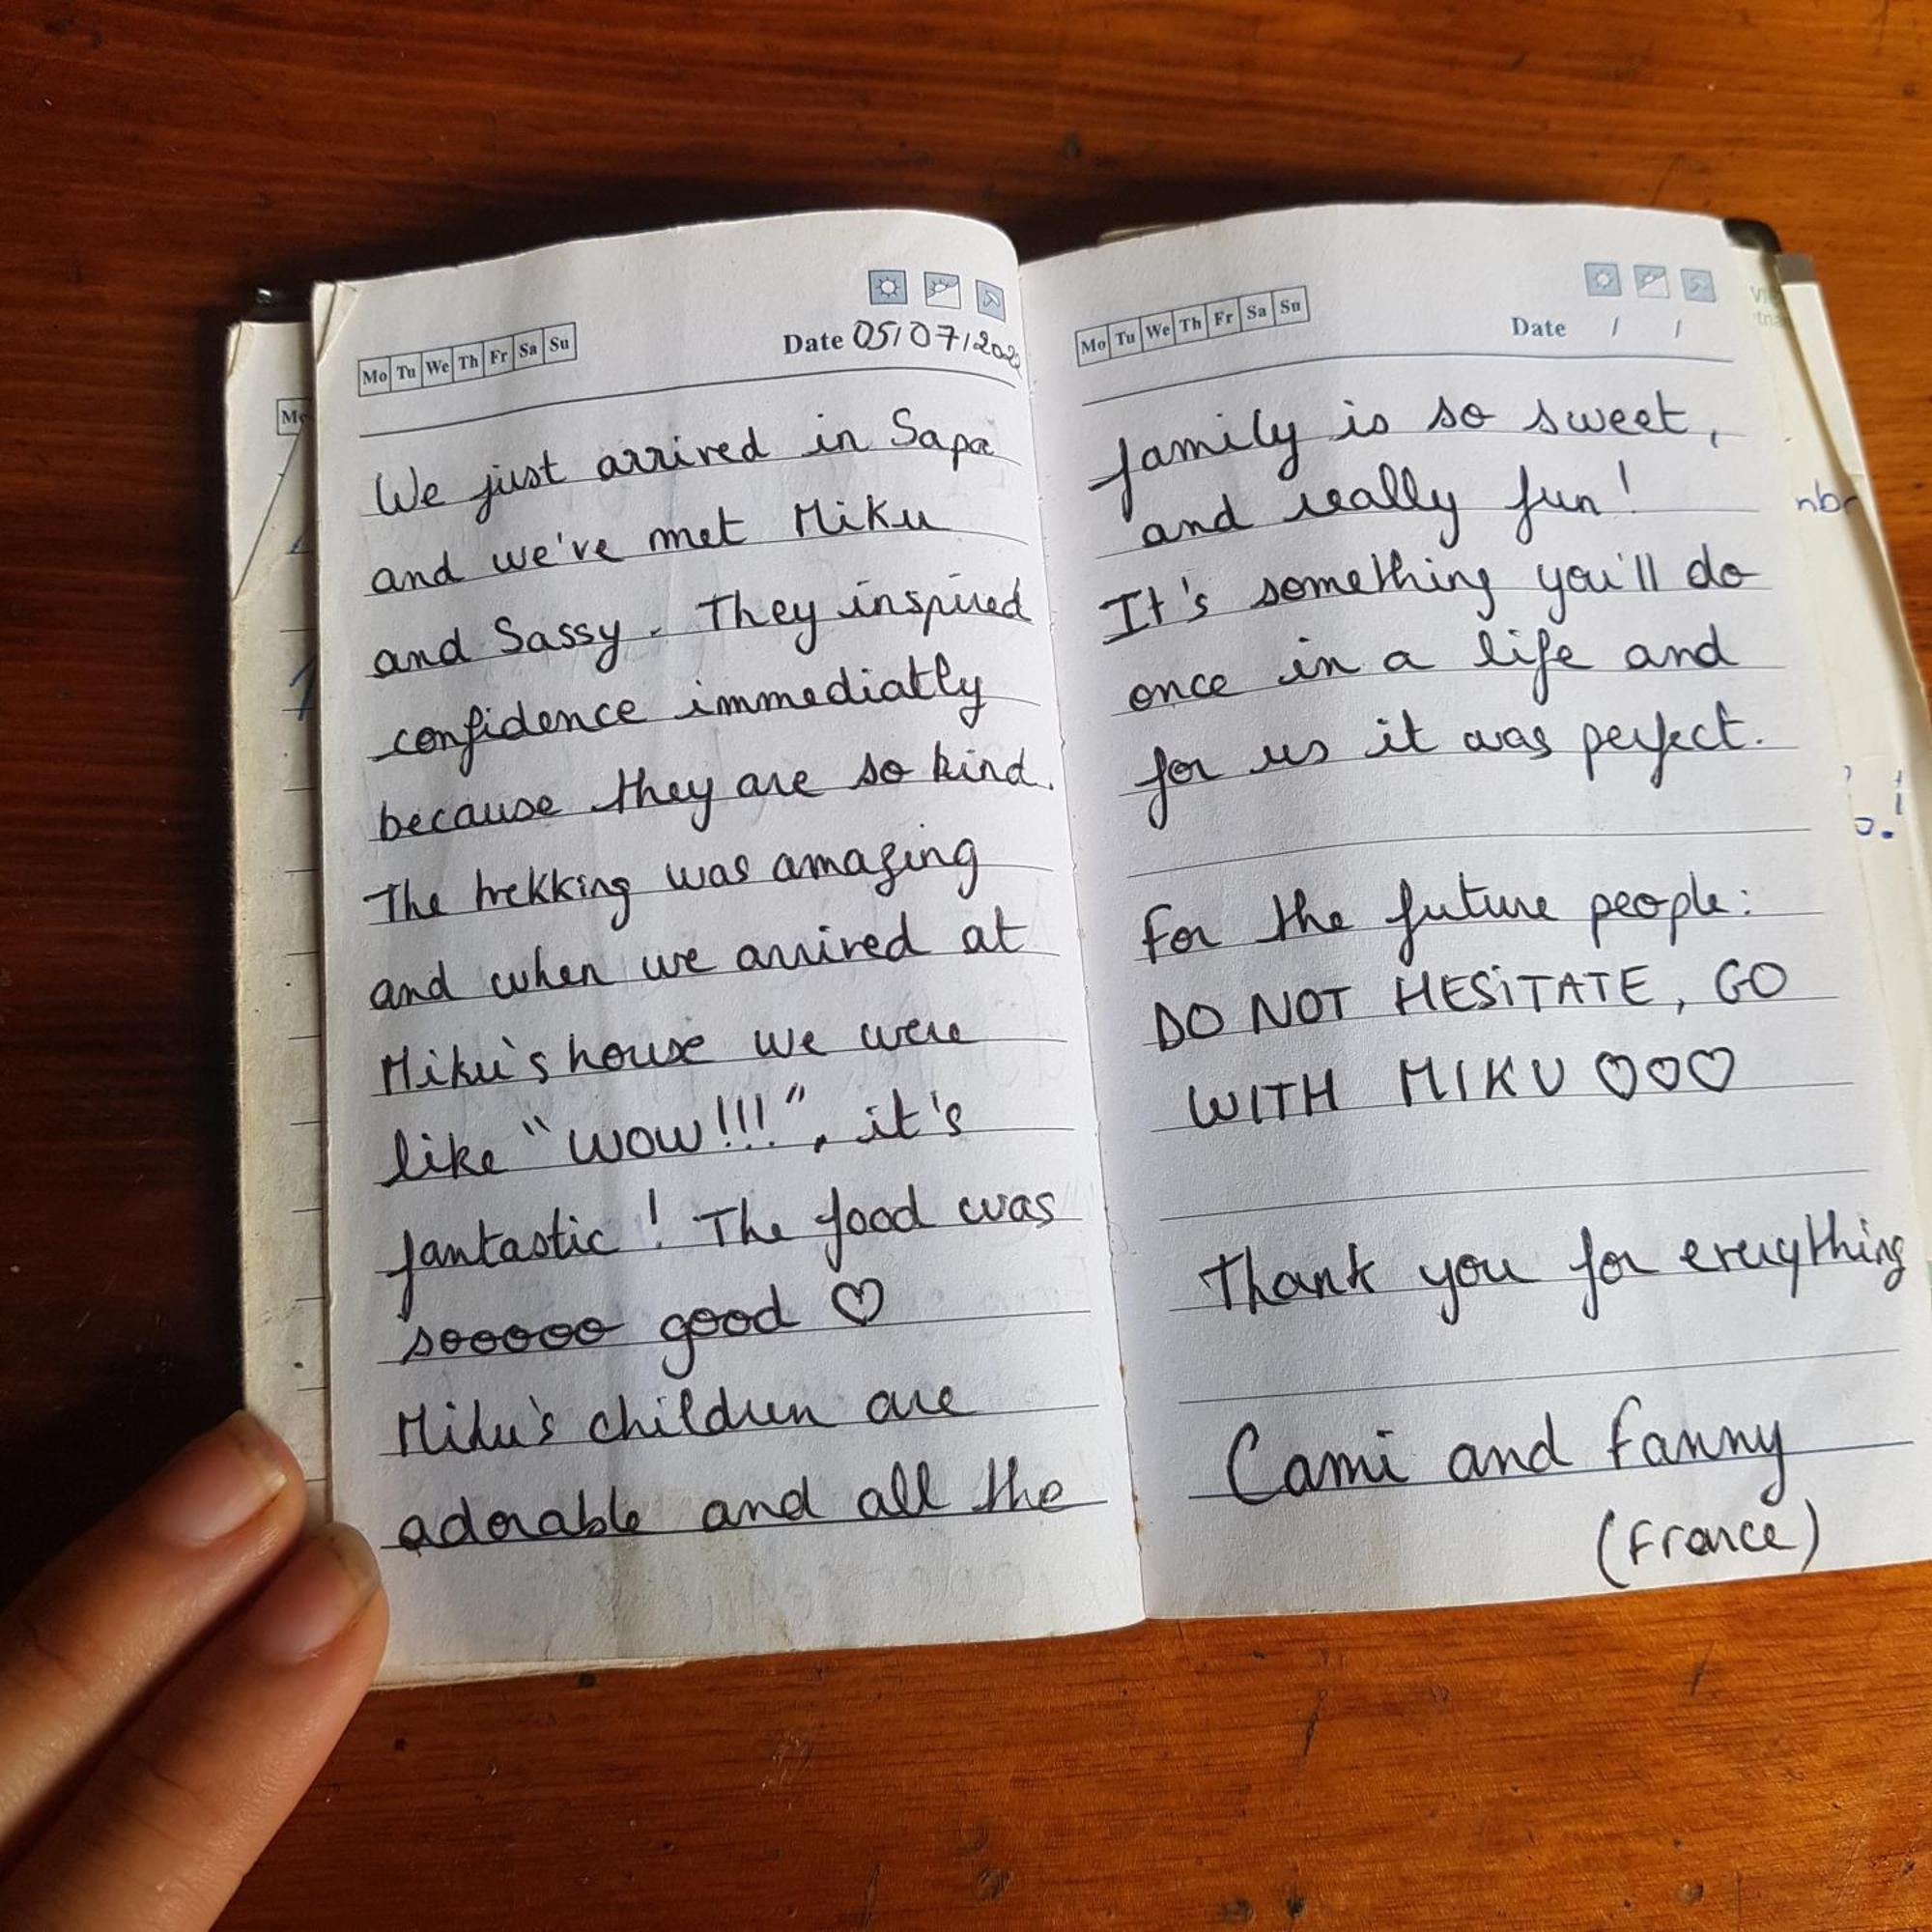 Mo Tu We Th Fr Sa Su
Date 05/07/202
We just arrived in Sapa
and we've met Miku
and Sassy. They inspired
confidence immediatly
because they are so kind.
The trekking was amazing
and when we arrived at
Miku's house we were
like "WOW!!!", it's
fantastic! The food was
sooooo good ♡
Miku's children are
adorable and all the
Mo Tu We Th Fr Sa Su
Date / /
family is so sweet,
and really fun!
It's something you'll do
once in a life and
for us it was perfect.
For the future people:
DO NOT HESiTATE, GO
WITH MIKU ♡♡♡
Thank you for everything
Cami and Fanny
(France)